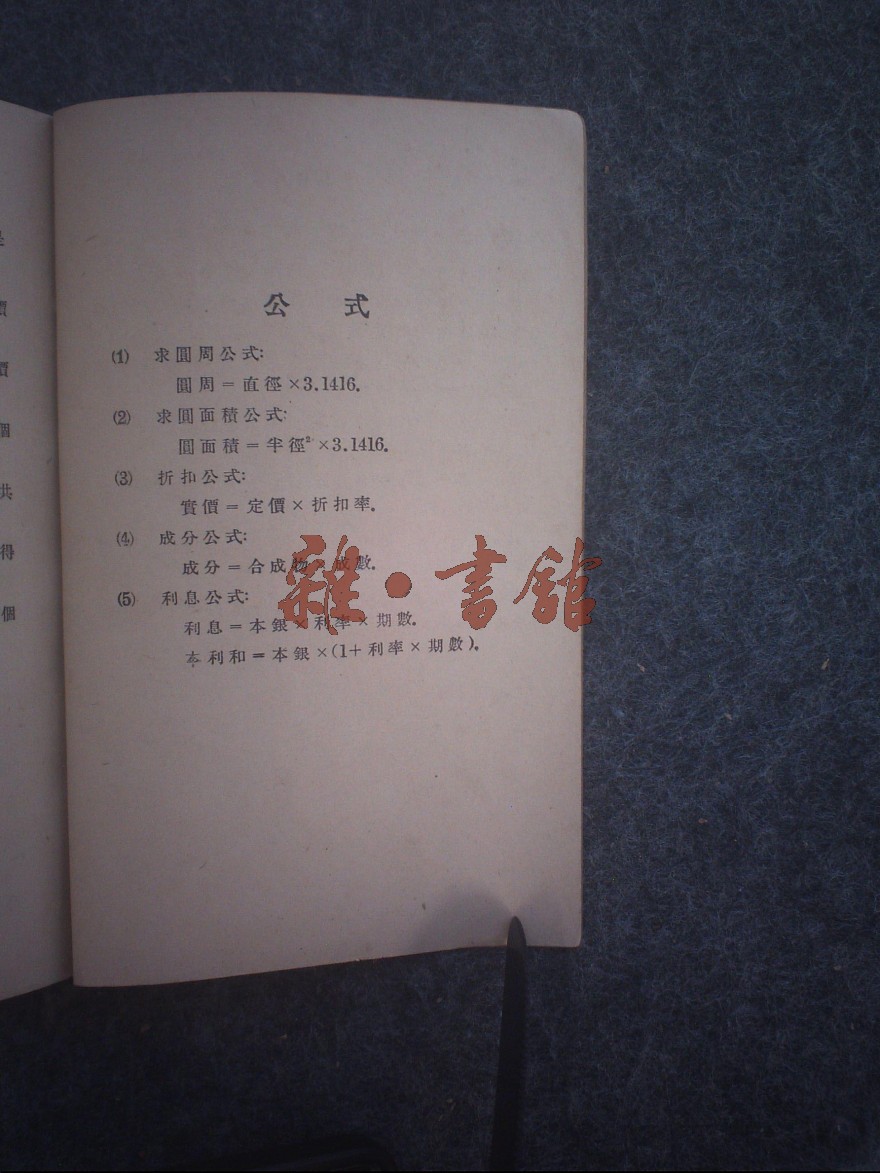 公式
(1) 求圓周公式:
圓周=直徑×3.1416.
(2) 求圓面積公式:
圓面積=半徑²×3.1416.
(3) 折扣公式:
實價=定價×折扣率.
(4) 成分公式:
成分=合成物×成數.
(5) 利息公式:
利息=本銀×利率×期數.
本利和=本銀×(1+利率×期數).
雜·書館
價
個
共
得
個